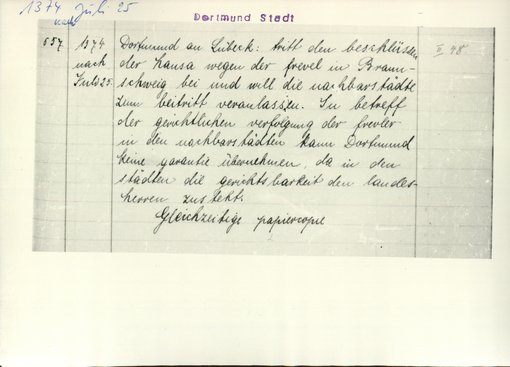 1374 Juli 25
nach
Dortmund Stadt
657. 1374 Dortmund an Lübeck: tritt den beschlüssen II 48
nach der hansa wegen der frevel in Braun-
Juli 25. schweig bei und will die nachbarstädte
zum beitritt veranlassen. In betreff
der gerichtlichen verfolgung der frevler
in den nachbarstädten kann Dortmund
keine garantie übernehmen, da in den
städten die gerichtsbarkeit den landes-
herren zusteht.
Gleichzeitige papiercopie